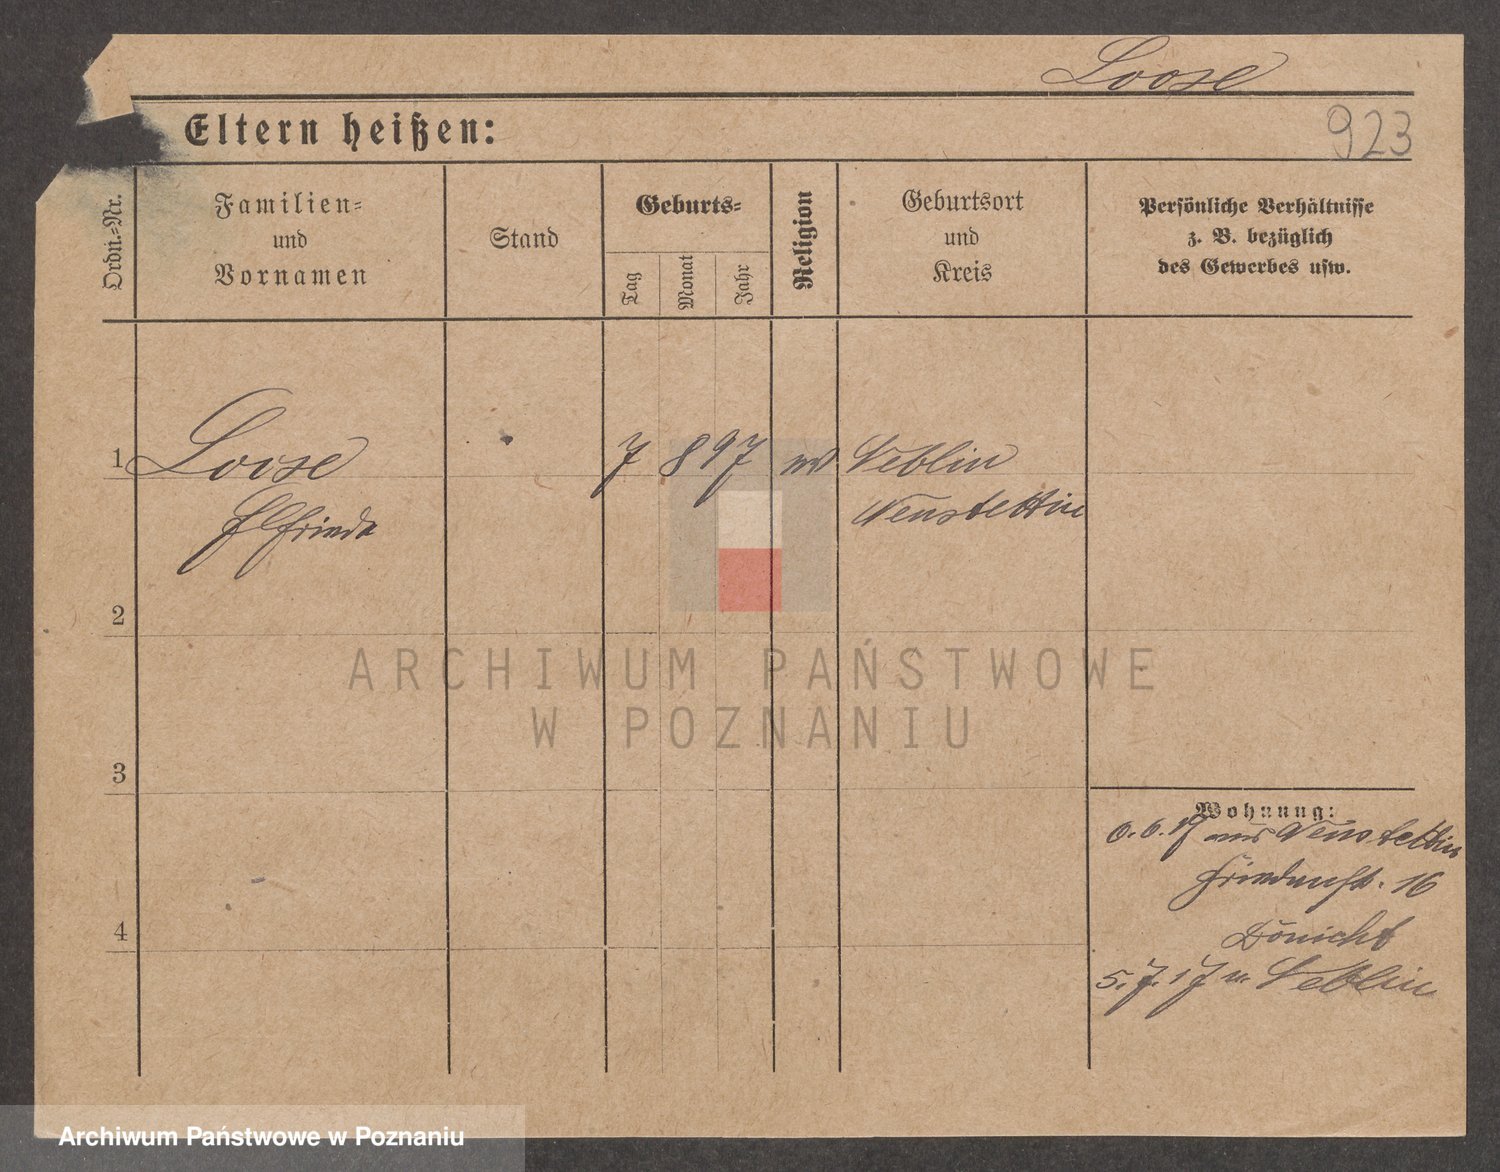 Loose
923
Eltern heißen:
Ordn.=Nr.
Familien=
und
Vornamen
Stand
Geburts=
Tag
Monat
Jahr
Religion
Geburtsort
und
Kreis
Persönliche Verhältnisse
z. B. bezüglich
des Gewerbes usw.
1 Loose 7 8 97
Elfriede Neustettin
2
3
4
Wohnung:
6.6.17 aus Neustettin
16
5.7.17 n.
ARCHIWUM PAŃSTWOWE
W POZNANIU
Archiwum Państwowe w Poznaniu